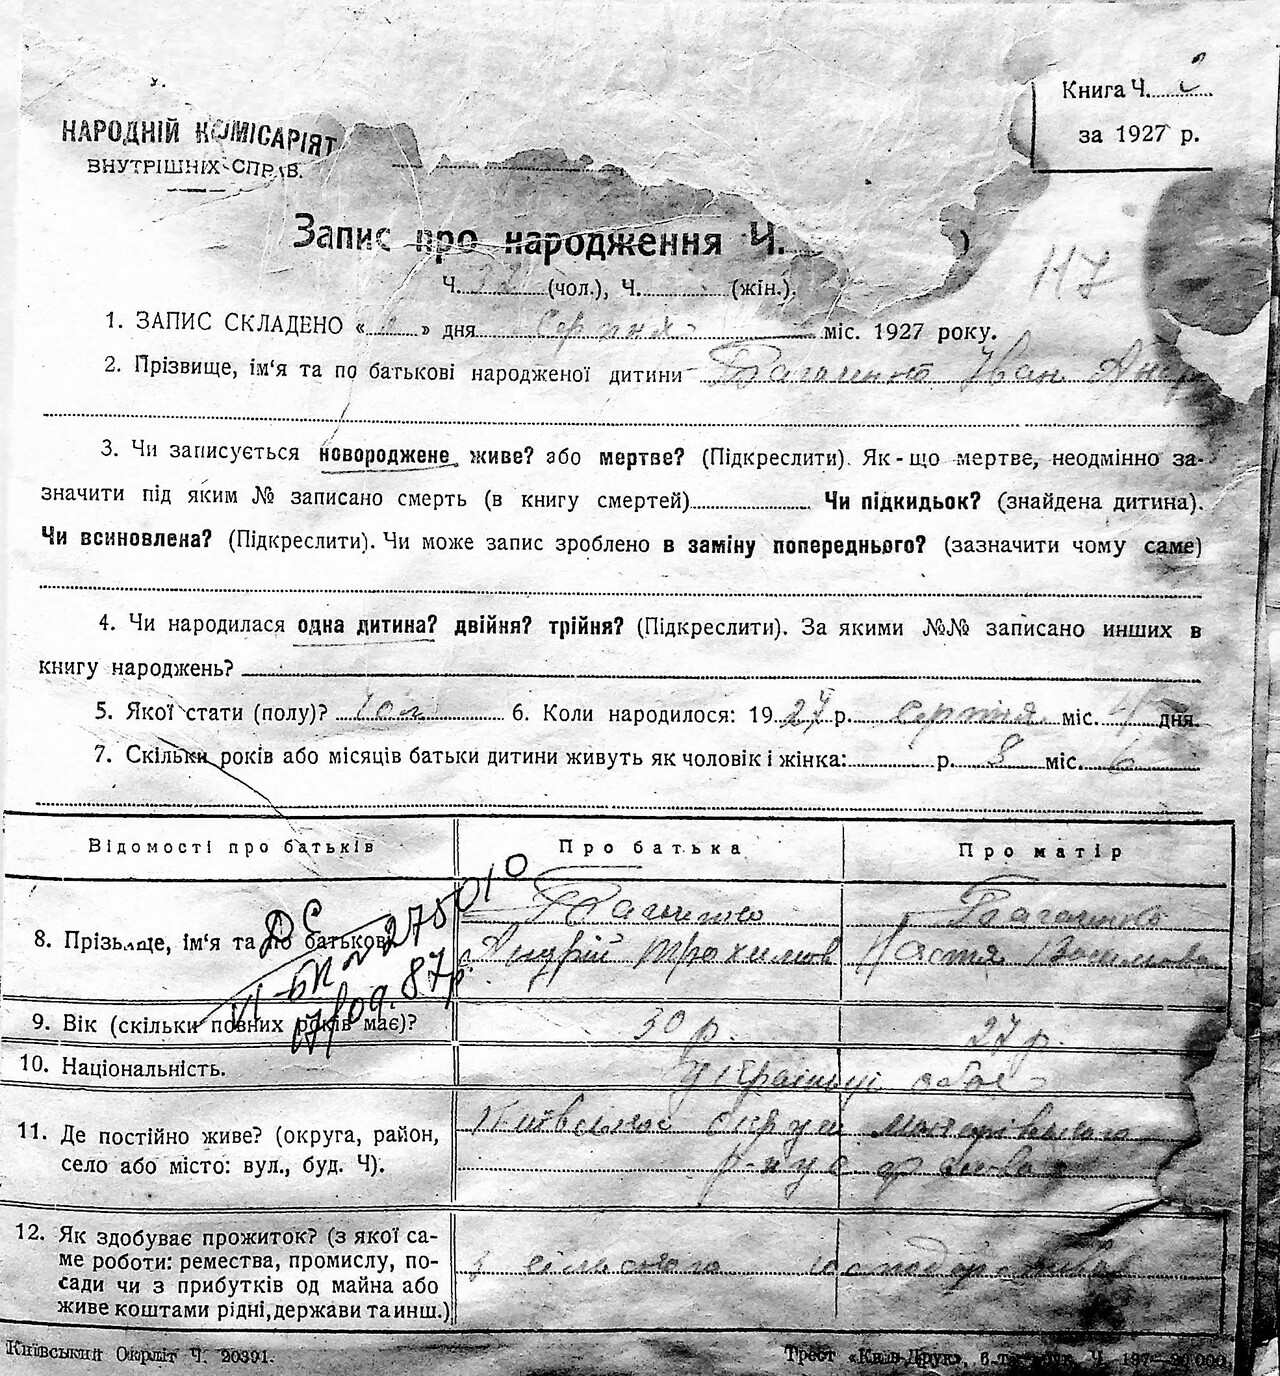 Книга Ч.
за 1927 р.
НАРОДНІЙ КОМІСАРІЯТ
ВНУТРІШНІХ СПРАВ.
Запис про народження Ч.
Ч. (чол.), Ч. (жін.).
Н7
1. ЗАПИС СКЛАДЕНО « » дня Серпня міс. 1927 року.
2. Прізвище, ім'я та по батькові народженої дитини Іван
3. Чи записується новороджене живе? або мертве? (Підкреслити). Як-що мертве, неодмінно за-
значити під яким № записано смерть (в книгу смертей) Чи підкидьок? (знайдена дитина).
Чи всиновлена? (Підкреслити). Чи може запис зроблено в заміну попереднього? (зазначити чому саме)
4. Чи народилася одна дитина? двійня? трійня? (Підкреслити). За якими №№ записано инших в
книгу народжень?
5. Якої стати (полу)? чол 6. Коли народилося: 1927 р. серпня міс. 4 дня.
7. Скільки років або місяців батьки дитини живуть як чоловік і жінка: р. 8 міс. 6
Відомості про батьків Про батька Про матір
8. Прізвище, ім'я та по батькові
Андрій Трохимов Настя
9. Вік (скільки повних років має)? 30 р. 27 р.
10. Національність. Українці обоє
11. Де постійно живе? (округа, район, Київської округи Макарівського
село або місто: вул., буд. Ч). р-ну
12. Як здобуває прожиток? (з якої са-
ме роботи: ремества, промислу, по- з сільського господарства
сади чи з прибутків од майна або
живе коштами рідні, держави та инш.)
275010
87р.
Київський Окрліт Ч. 20391.
Трест «Київ-Друк»,